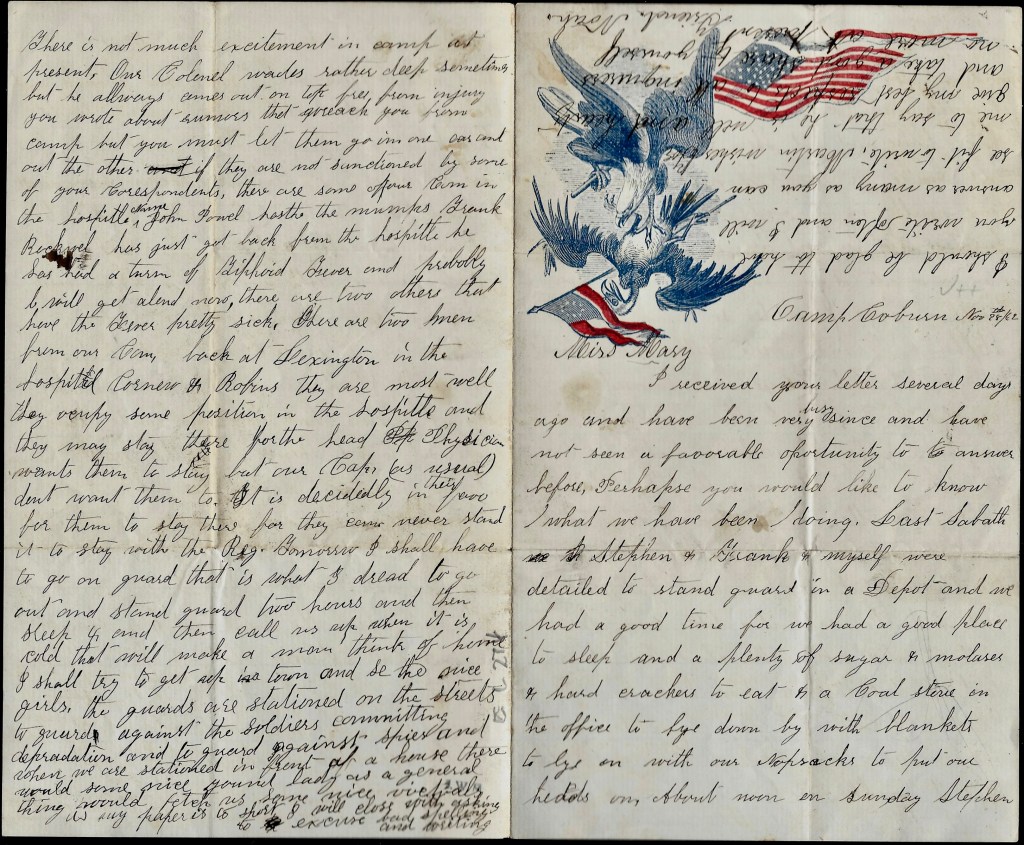 There is not much excitement in camp at
present, Our Colenel wades rather deep sometimes
but he allways comes out on toft free from injury
you wrote about rumors that goreach you from
camp but you must let them go in one ear and
out the other and if they are not sunctioned by some
of your Corespondents, there are some of our Com in
the hospittle John Powel hasthe mumps Frank
Rockwel has just got back from the hospitle he
has had a turn of Tiphoid Fever and probbly
will get alond now, there are two others that
have the Fever pretty sick, There are two men
from our Com back at Lexington in the
hospittl Cornew & Robins they are most well
they ocupy some position in the hospittle and
they may stay there for the head Physician
wants them to stay but our Capt (as useual)
dont want them to. It is decidedly in their favo
for them to stay there for they can never stand
it to stay with the Reg. Tomorrow I shall have
to go on guard that is what I dread to go
out and stand guard two hours and then
sleep 4 and then call us up when it is
cold that will make a man think of home
I shall try to get up to town and se the nice
girls, the guards are stationed on the streets
to guard against the soldiers committing
depradation and to guard against spies and
when we are stationed in front of a house there
would some nice young lady as a general
thing would fetch us some nice
as my paper is to short I will close with asking
to excuse bad spelling
and writing
I should be glad to have
you write often and I will
answer as many as you can
so fit to write, Martin wishes
me to say that he is well
give my best respects to all inquirers
and take a good share to yourself
no more at present
Friend, Noah.
Camp Coburn Nov /62
Miss Mary
I received your letter several days
ago and have been very busy since and have
not seen a favorable oportunity to to answer
before, Perhapse you would like to know
what we have been doing. Last Sabath
Stephen & Frank & myself were
detailed to stand guard in a Depot and we
had a good time for we had a good place
to sleep and a plenty of sugar & molases
& hard crackers to eat & a Coal stove in
the office to lye down by with blankets
to lye on with our Nopsacks to put our
hedds on, About noon on Sunday Stephen